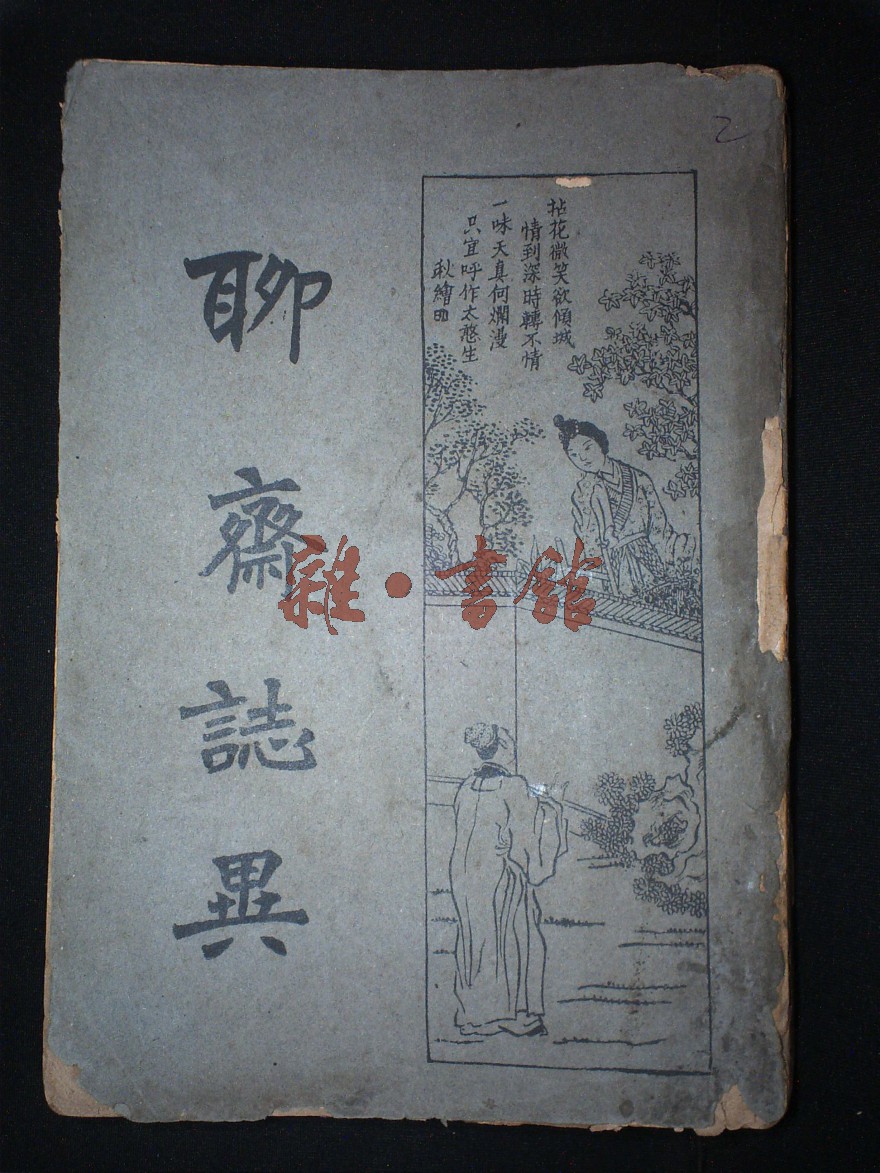 聊齋誌異
拈花微笑欲傾城
情到深時轉不情
一味天真何爛漫
只宜呼作太憨生
秋繪
雜·書館
2